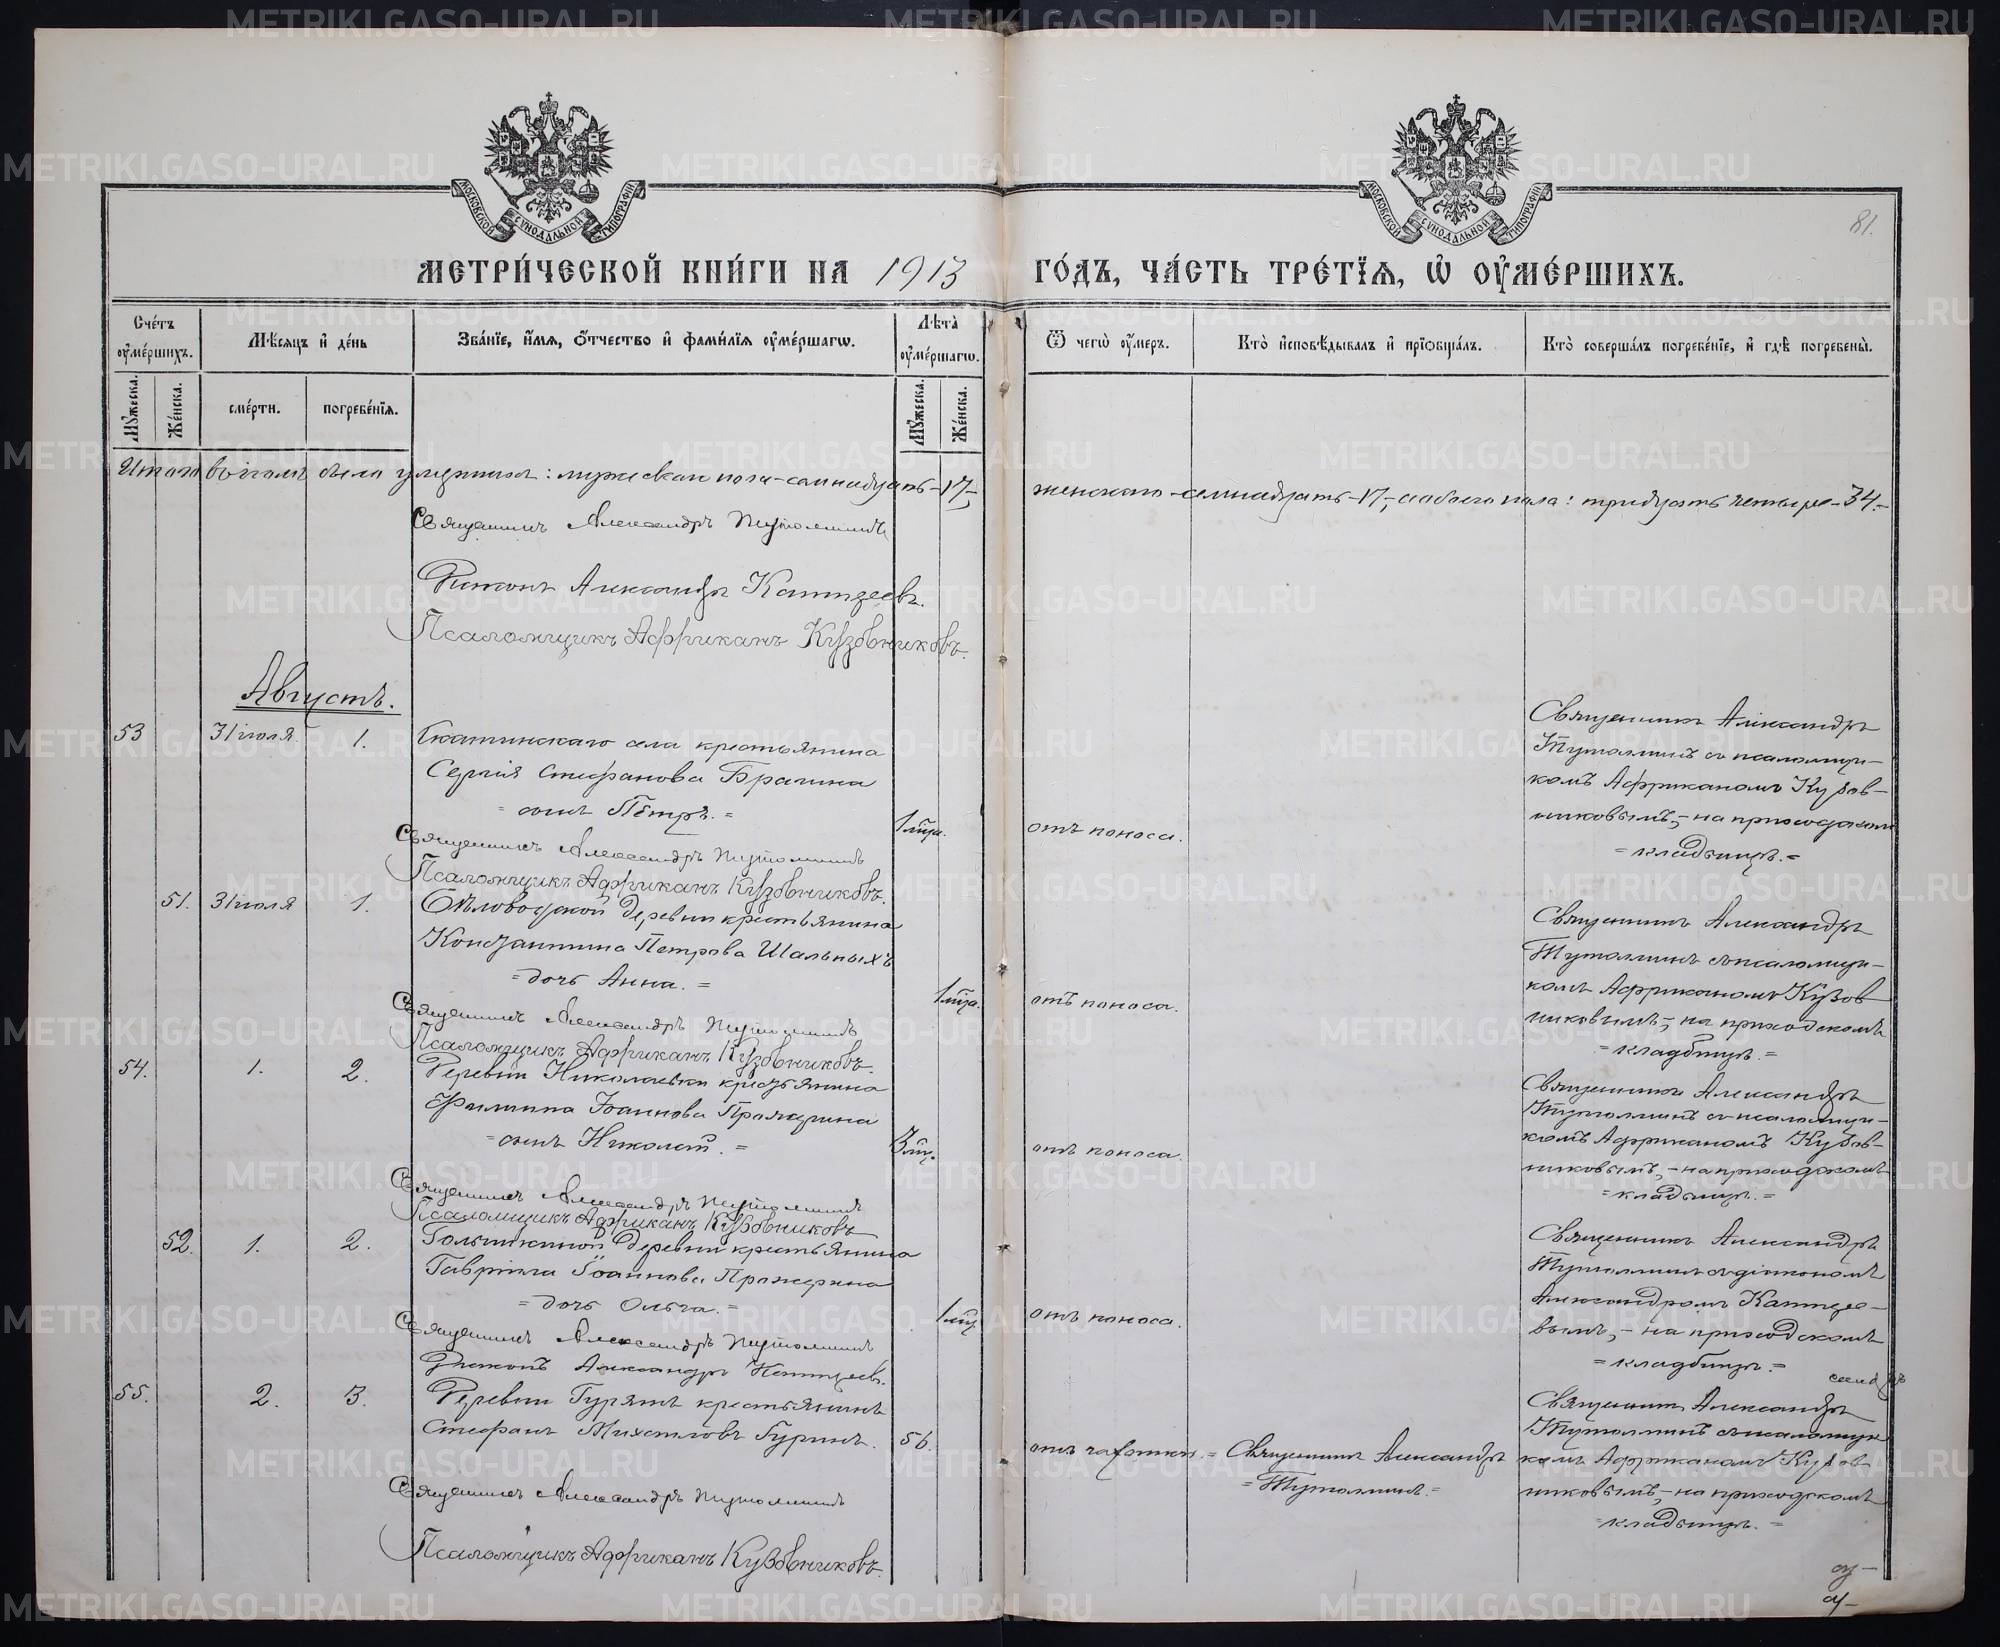 METRIKI.GASO-URAL.RU
МОСКОВСКОЙ СѴНОДАЛЬНОЙ ТИПОГРАФІИ
МОСКОВСКОЙ СѴНОДАЛЬНОЙ ТИПОГРАФІИ
81.
МЕТРИ́ЧЕСКОЙ КНИ́ГИ НА 1913 ГО́ДЪ, ЧА́СТЬ ТРЕ́ТІѦ, Ѡ҆ ОУ҆МЕ́РШИХЪ.
Сче́тъ оу҆ме́ршихъ.
Мѣ́сяцъ и҆ де́нь
Зва́нїе, и҆́мя, ѻ҆́тчество и҆ фами́лїя оу҆ме́ршагѡ.
Лѣ́та оу҆ме́ршагѡ.
Ѿ чегѡ̀ оу҆́меръ.
Кто̀ и҆сповѣ́дывалъ и҆ прїѡбща́лъ.
Кто̀ соверша́лъ погребе́нїе, и҆ гдѣ̀ погребены̀.
Мꙋ́жеска.
Же́нска.
сме́рти.
погребе́нїя.
Мꙋ́жеска.
Же́нска.
Итого въ іюлѣ было умершихъ: мужескаго пола - семнадцать - 17, женскаго - семнадцать - 17, обоего пола: тридцать четыре - 34. -
Священникъ Александръ Тутолминъ
Діаконъ Александръ Каптуревъ.
Псаломщикъ Африканъ Кузовниковъ.
Августъ.
53 31 іюля. 1. Скатинскаго села крестьянина
Сергія Стефанова Брагина
= сынъ Петръ. = 1 мѣсца. отъ поноса.
Священникъ Александръ
Тутолминъ съ псаломщи-
комъ Африканомъ Кузов-
никовымъ, - на приходскомъ
= кладбищѣ. =
Священникъ Александръ Тутолминъ
Псаломщикъ Африканъ Кузовниковъ.
51. 31 іюля 1. Бѣловодской деревни крестьянина
Константина Петрова Шальныхъ
= дочь Анна. = 1 мѣсца. отъ поноса.
Священникъ Александръ
Тутолминъ съ псаломщи-
комъ Африканомъ Кузов
никовымъ, на приходскомъ
= кладбищѣ. =
Священникъ Александръ Тутолминъ
Псаломщикъ Африканъ Кузовниковъ.
54. 1. 2. Деревни Николаевки крестьянина
Филиппа Іоаннова Прожерина
= сынъ Николай. = 3 мѣс. отъ поноса.
Священникъ Александръ
Тутолминъ съ псаломщи-
комъ Африканомъ Кузов-
никовымъ, - на приходскомъ
= кладбищѣ. =
Священникъ Александръ Тутолминъ
Псаломщикъ Африканъ Кузовниковъ
52. 1. 2. деревни крестьянина
Гавріила Іоаннова Прожерина
= дочь Ольга. = 1 мѣс. отъ поноса.
Священникъ Александръ
Тутолминъ съ діакономъ
Александромъ Каптуре-
вымъ, - на приходскомъ
= кладбищѣ. =
Священникъ Александръ Тутолминъ
Діаконъ Александръ Каптуревъ.
55. 2. 3. Деревни Гурятъ крестьянинъ
Стефанъ Михаиловъ Гуринъ. 56. отъ чахотки. = Священникъ Александръ
= Тутолминъ. =
Священникъ Александръ
Тутолминъ съ псаломщи
комъ Африканомъ Кузов
никовымъ, - на приходскомъ
= кладбищѣ. =
Священникъ Александръ Тутолминъ
Псаломщикъ Африканъ Кузовниковъ.